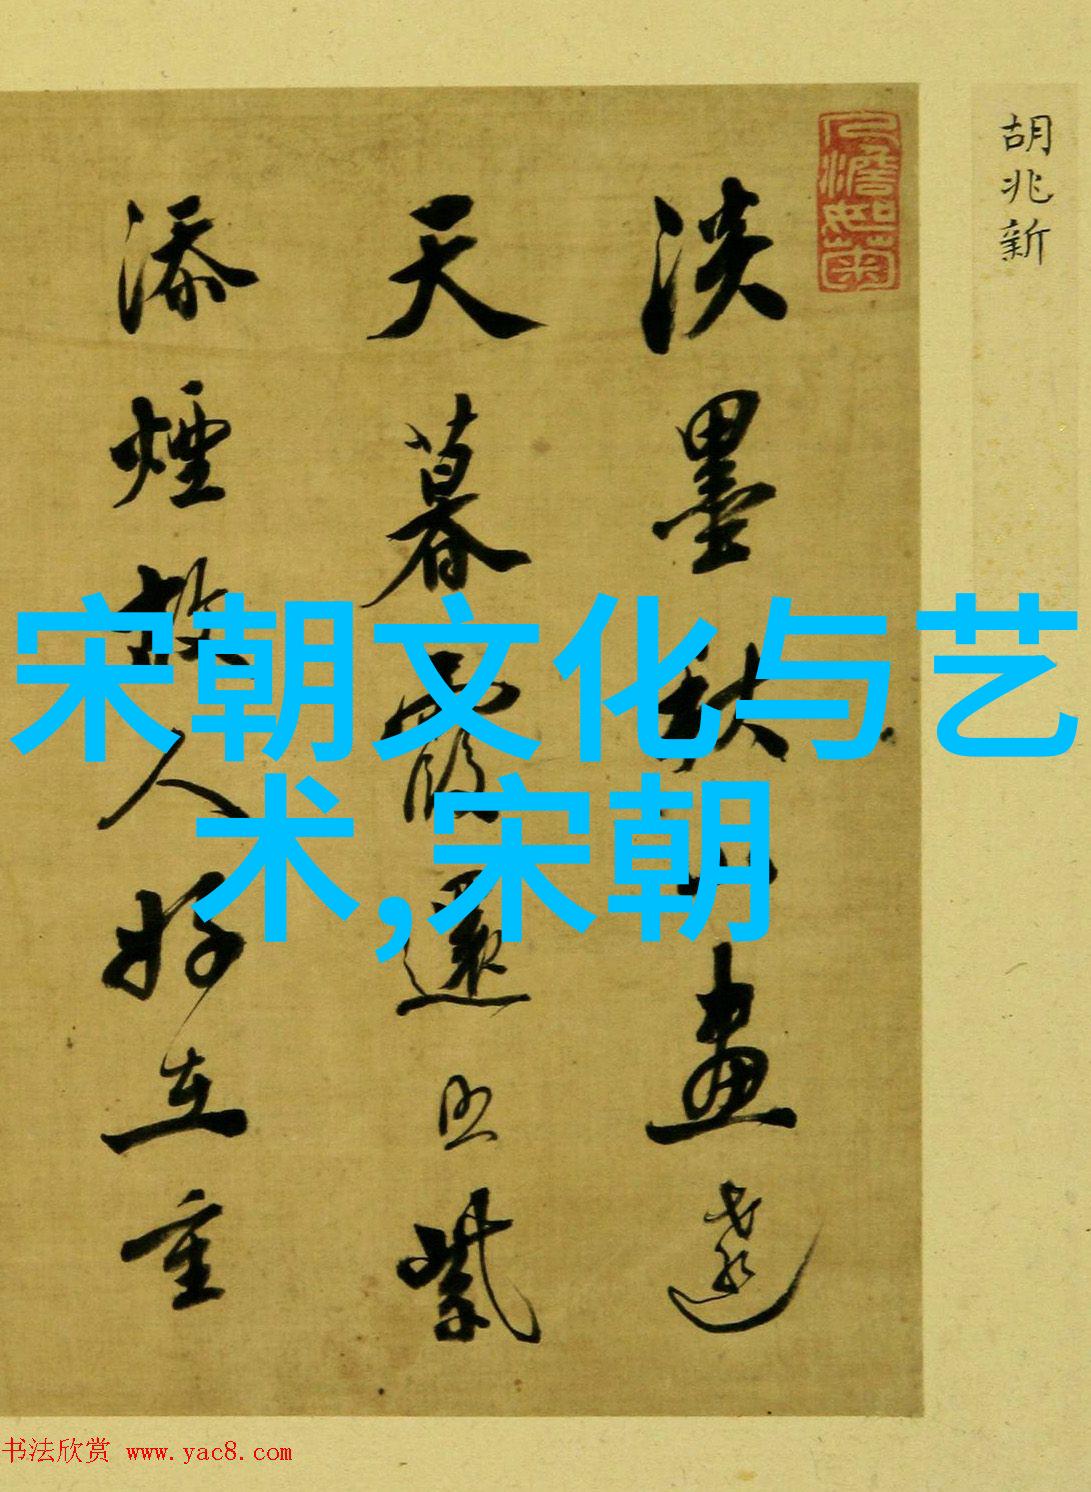 胡兆新
淡墨秋山畫遠
天暮霞還照紫
添煙故人好在重
宋朝文化与艺
术,宋朝
书法欣赏 www.yac8.com